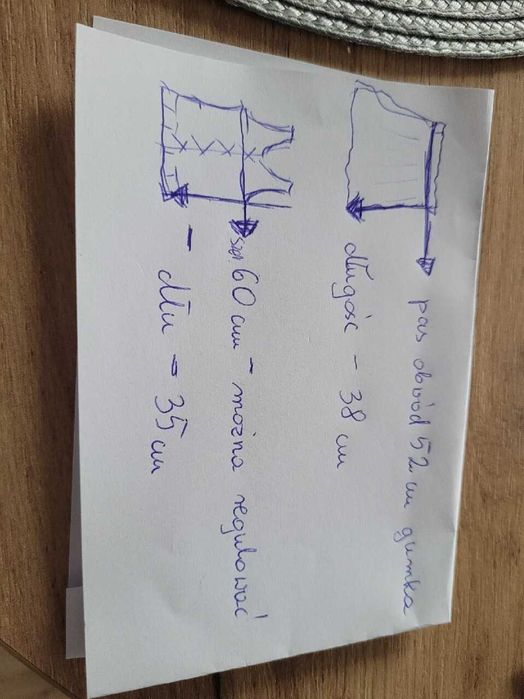 pas obwód 52 cm gumka
długość - 38 cm
60 cm - można regulować
- dłu - 35 cm